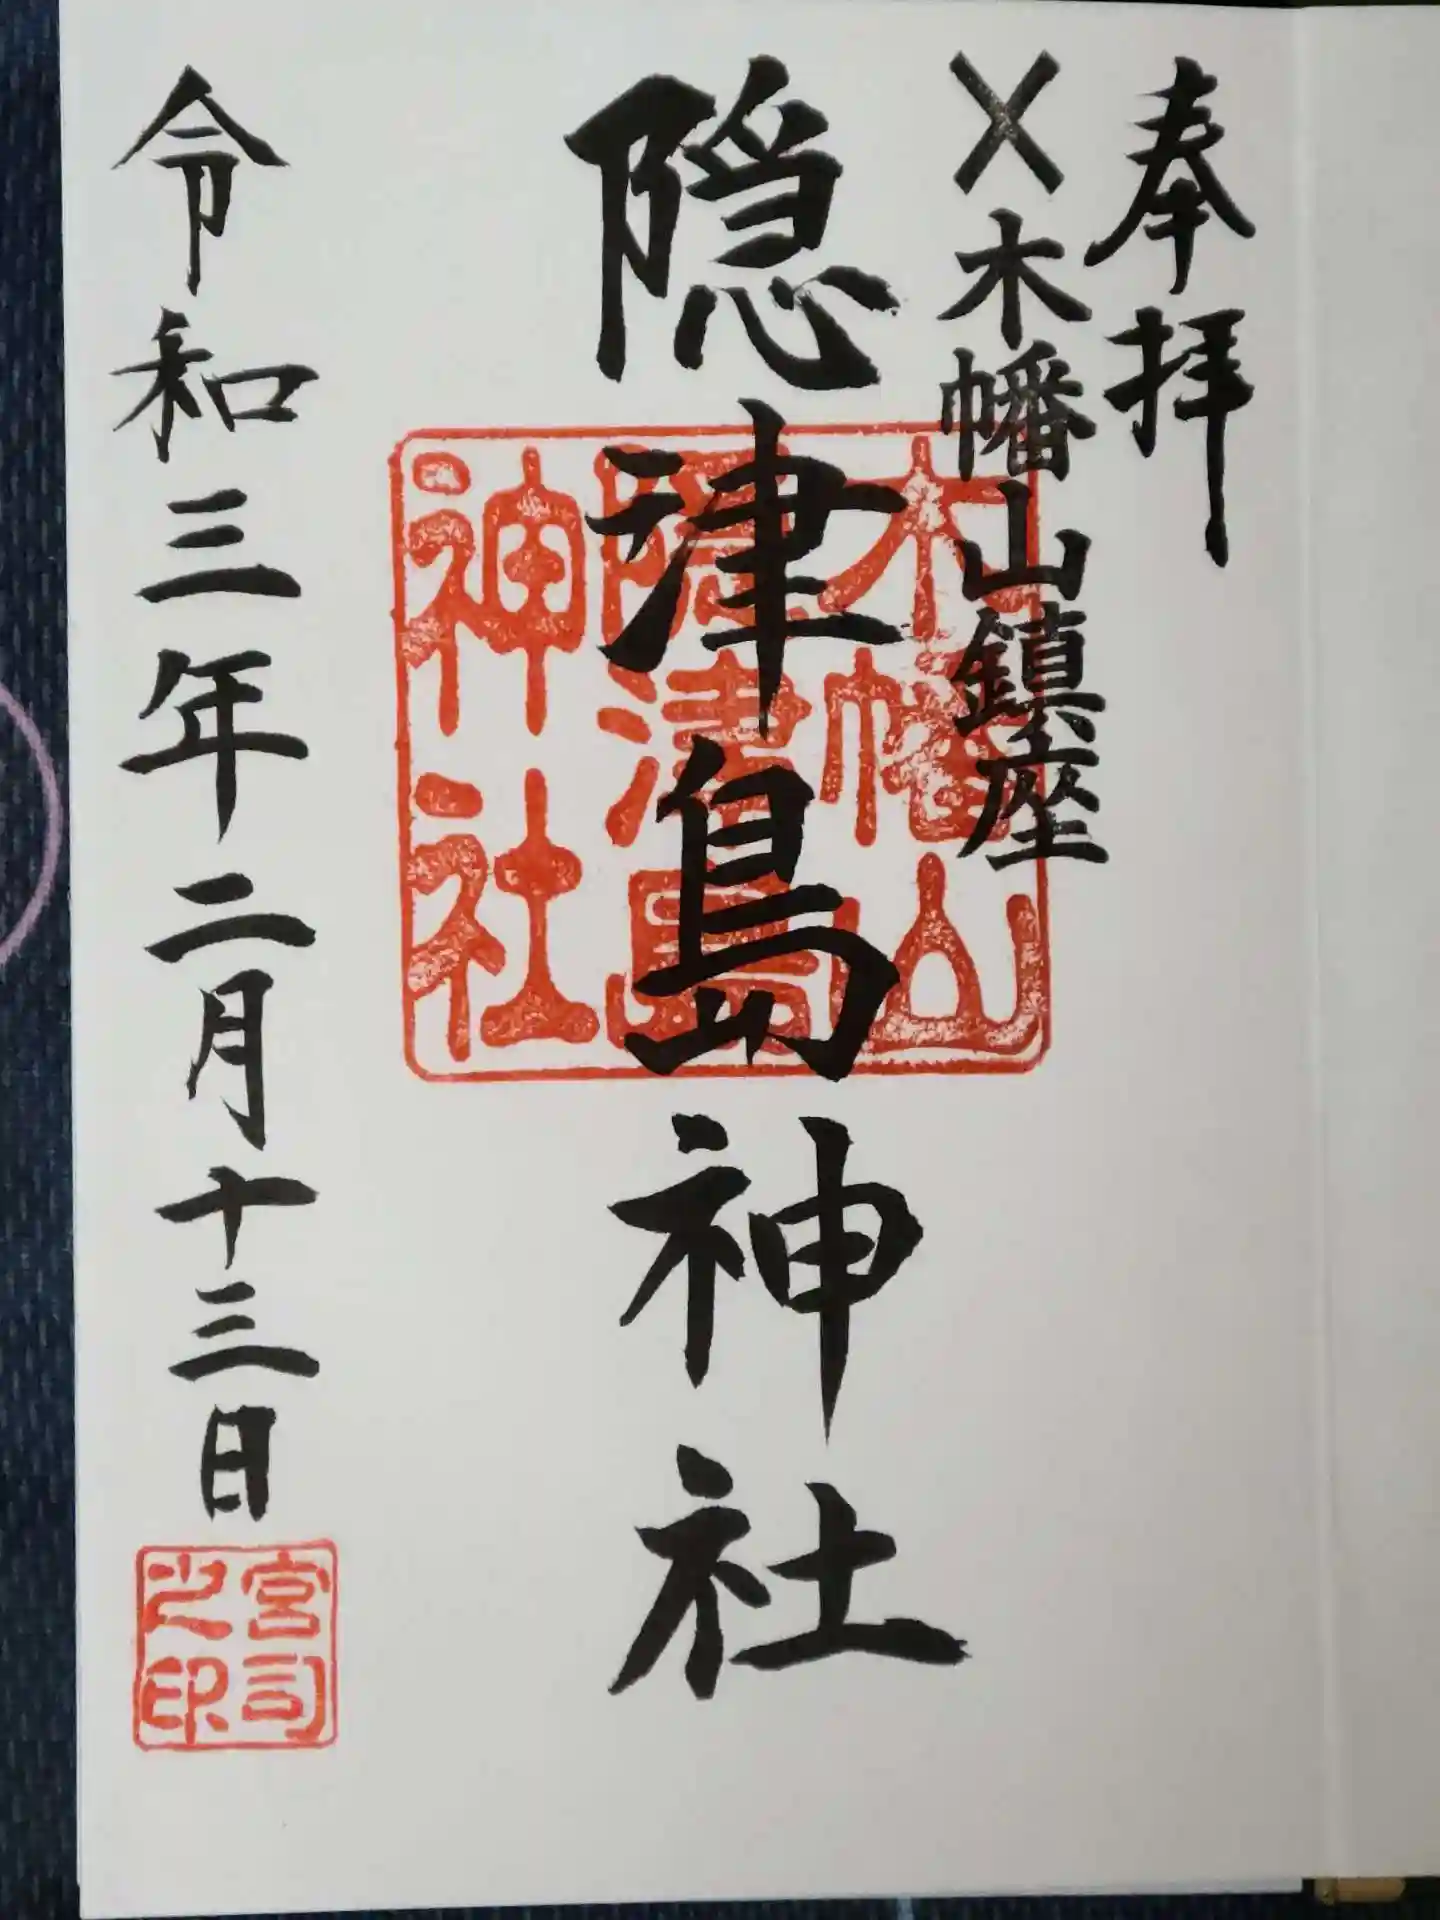 奉拝
〆木幡山鎮座
隠津島神社
木幡山
隠津島
神社
令和三年二月十三日
宮司
之印